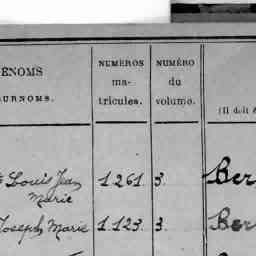 ÉNOMS
URNOMS.
NUMÉROS
ma-
tricules.
NUMÉRO
du
volume.
(Il doit ê
Louis Jean
Marie
1.261. 3. Ber
Joseph Marie 1.123. 3. Ber